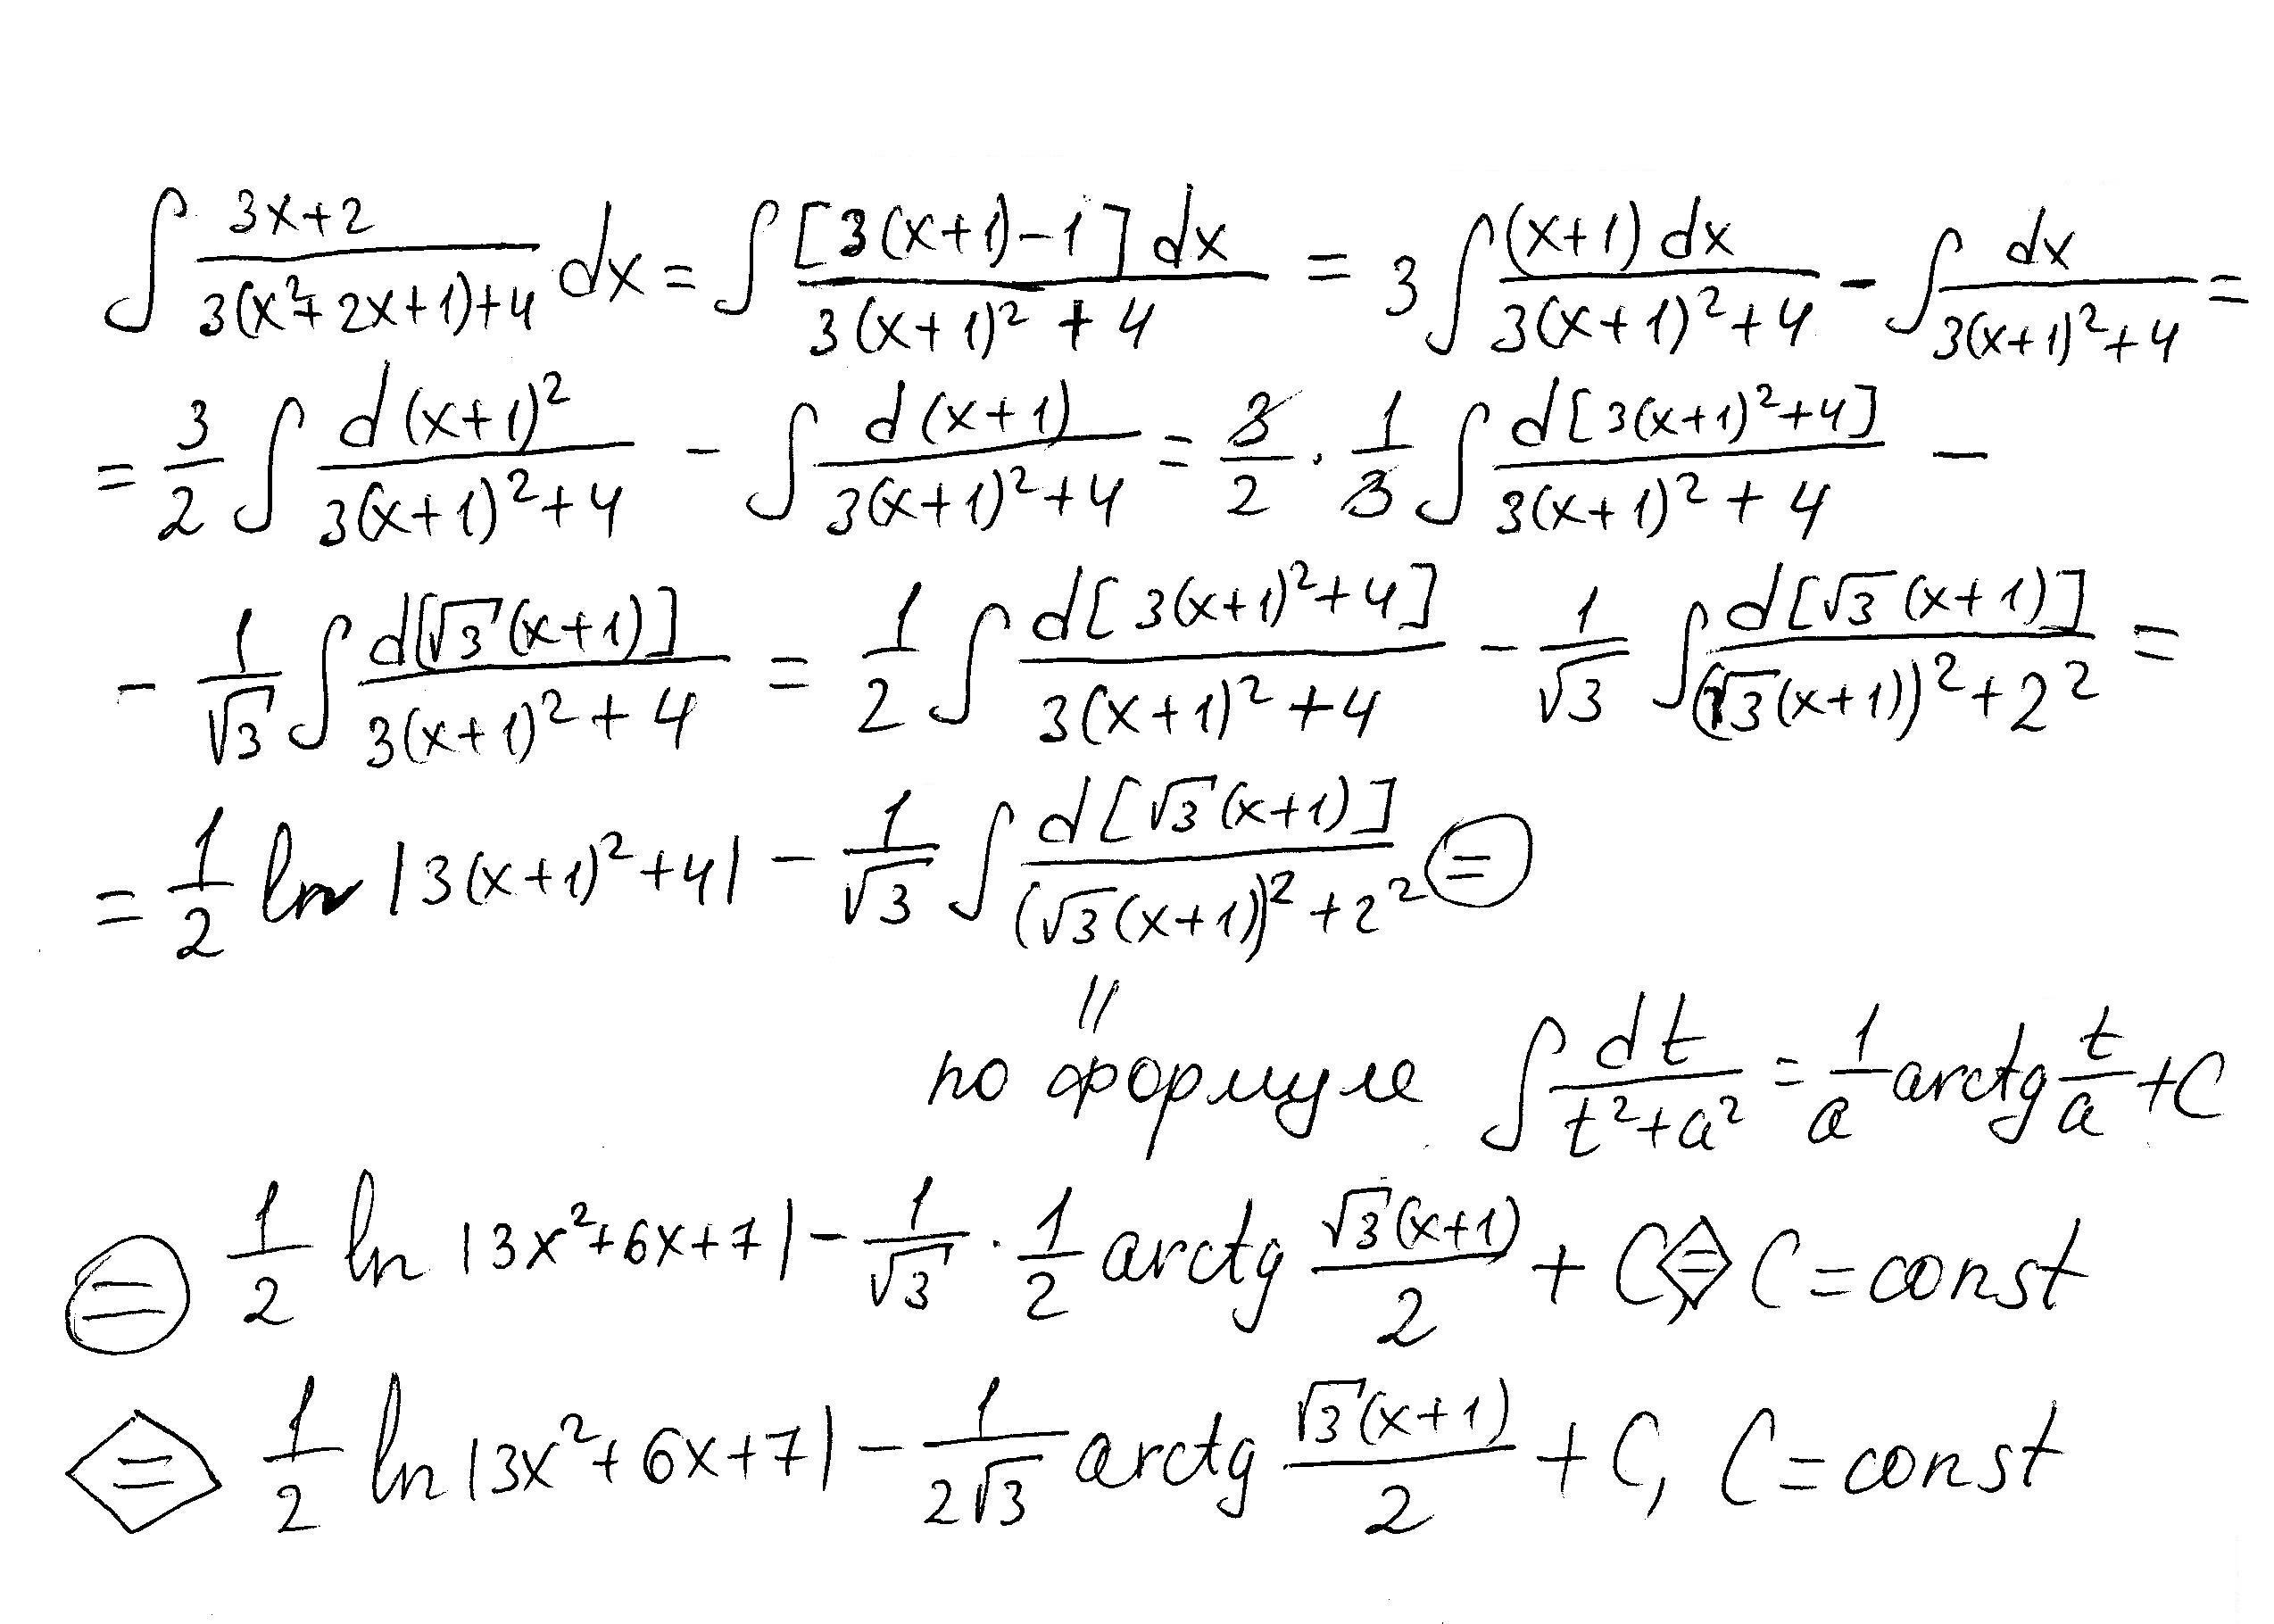 ∫ (3x+2)/(3(x²+2x+1)+4) dx = ∫ [3(x+1)-1]dx/(3(x+1)²+4) = 3∫ (x+1)dx/(3(x+1)²+4) - ∫ dx/(3(x+1)²+4) =
= 3/2 ∫ d(x+1)²/(3(x+1)²+4) - ∫ d(x+1)/(3(x+1)²+4) = 3/2 · 1/3 ∫ d[3(x+1)²+4]/(3(x+1)²+4) -
- 1/√3 ∫ d[√3(x+1)]/(3(x+1)²+4) = 1/2 ∫ d[3(x+1)²+4]/(3(x+1)²+4) - 1/√3 ∫ d[√3(x+1)]/((√3(x+1))²+2²) =
= 1/2 ln |3(x+1)²+4| - 1/√3 ∫ d[√3(x+1)]/((√3(x+1))²+2²) =
=
по формуле ∫ dt/(t²+a²) = 1/a arctg t/a + C
= 1/2 ln |3x²+6x+7| - 1/√3 · 1/2 arctg √3(x+1)/2 + C, = C = const
= 1/2 ln |3x²+6x+7| - 1/(2√3) arctg √3(x+1)/2 + C, C = const